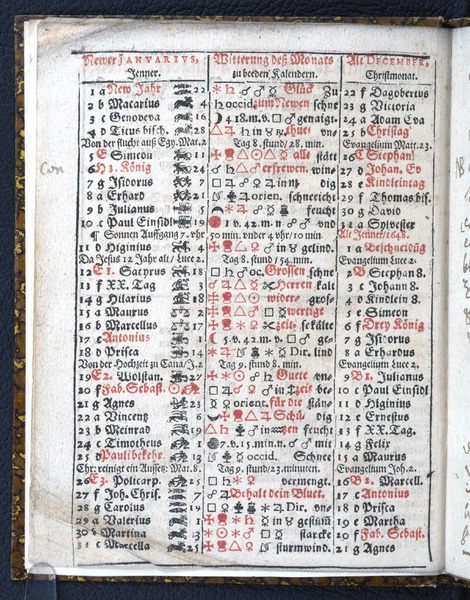 Newer JANUARIUS, Witterung deß Monats Alt DECEMBER,
Jenner. zu beeden Kalendern. Christmonat.
1 a New Jahr 22 Glück Zu 22 f Dagobertus
2 b Macarius 4 occid. zum Newen schne 23 g Victoria
3 c Genoveva 16 4 18. m. v. genaigt. 24 a Adam Eva
4 d Titus bisch. 28 in thut vns 25 b Christag
Von der flucht auß Egy. Mat. 2 Tag 8. stund/ 28. min. Evangelium Matt. 23.
5 E Simeon 11 alls stätt 26 C Stephan
6 f H 3. König 24 erfrewen. win- 27 d Johan. Ev
7 g Isidorus in dig 28 e Kindleintag
8 a Erhard orien. schneeicht 29 f Thomas bis.
9 b Julianus feucht 30 g David
10 c Paul Einsidl 19 1 v. 42. m. vnd 31 a Sylvester
Sonnen Auffgang 7. vhr. 50 min. vnder 4 vhr/ 10 min. Alt Jenner/1648.
11 d Higinius 4 in gelind. 1 a Beschneidũg
Da Jesus 12 Jahr alt/ Luce 2. Tag 8. stund/54. min. Evangelium Luce 2.
12 E 1. Satyrus 18 oc. Grossen schne 2 B Stephan 8.
13 f XX. Tag 3 Herren kalt 3 c Johann 8.
14 g Hilarius 18 wider- gros- 4 d Kindlein 8.
15 a Maurus 2 wertige 5 e Simeon
16 b Marcellus 17 zeit: sekälte 6 f Drey König
17 c Antonius 1 5 v. 42. m. v. ge- 7 g Isidorus
18 d Prisca 14 Dir. lind 8 a Erhardus
Von der Hochzeit zu Cana/J. 2 Tag 9. stund 8. min. Evangelium Luce 2.
19 E 2. Wolstan. 27 Guete vn- 9 B 1. Julianus
20 f Fab. Sebast. in zeit be- 10 c Paul Einsidl
21 g Agnes 23 orient. für die stän- 11 d Higinius
22 a Vincentz 6 Schä- dig 12 e Ernestus
23 b Meinrad 19 in zen feucht 13 f XX. Tag.
24 c Timotheus 1 7. v. 15. m. n. mit 14 g Felix
25 d Pauli bekehr. 13 occid. Schnee 15 a Maurus
Chr: reinigt ein Aussetz: Mat. 8. Tag 9. stund/23. minuten. Evangelium Joh. 2.
26 E 3. Policarp. 25 vermengt. 16 B 2. Marcell.
27 f Joh. Chris. 7 Behalt dein Bluet. 17 c Antonius
28 g Carolus 19 Dir. vn- 18 d Prisca
29 a Valerius 1 in gestüm 19 e Martha
30 b Martina 13 starcke 20 f Fab. Sebast.
31 c Marcella 25 sturmwind. 21 g Agnes